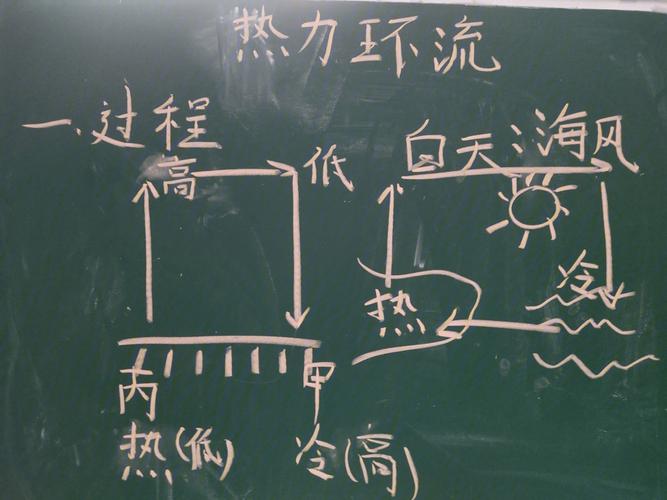 热力环流
一、过程
高 低
丙 甲
热(低) 冷(高)
白天:海风
热 冷